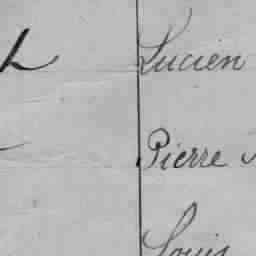 Lucien
Pierre
Louis